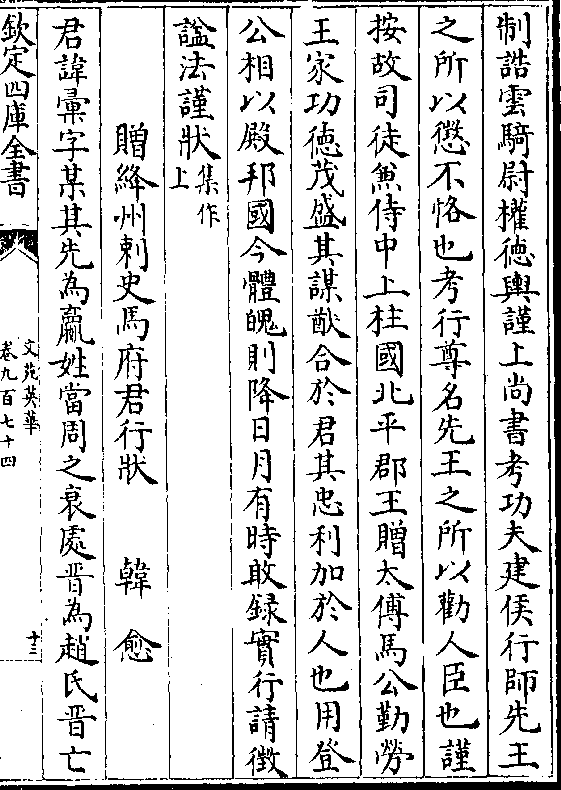 制誥雲騎尉權德輿謹上尚書考功夫建侯行師先王
之所以懲不恪也考行尊名先王之所以勸人臣也謹
按故司徒兼侍中上柱國北平郡王贈太傅馬公勤勞
王家功德茂盛其謀猷合於君其忠利加於人也用登
公相以殿邦國今體魄則降日月有時敢録實行請徵
諡法謹狀集作上
贈絳州剌史馬府君行狀 韓愈
君諱彚字某其先為嬴姓當周之衰處晋為趙氏晋亡
欽定四庫全書
文苑英華
卷九百七十四
十三